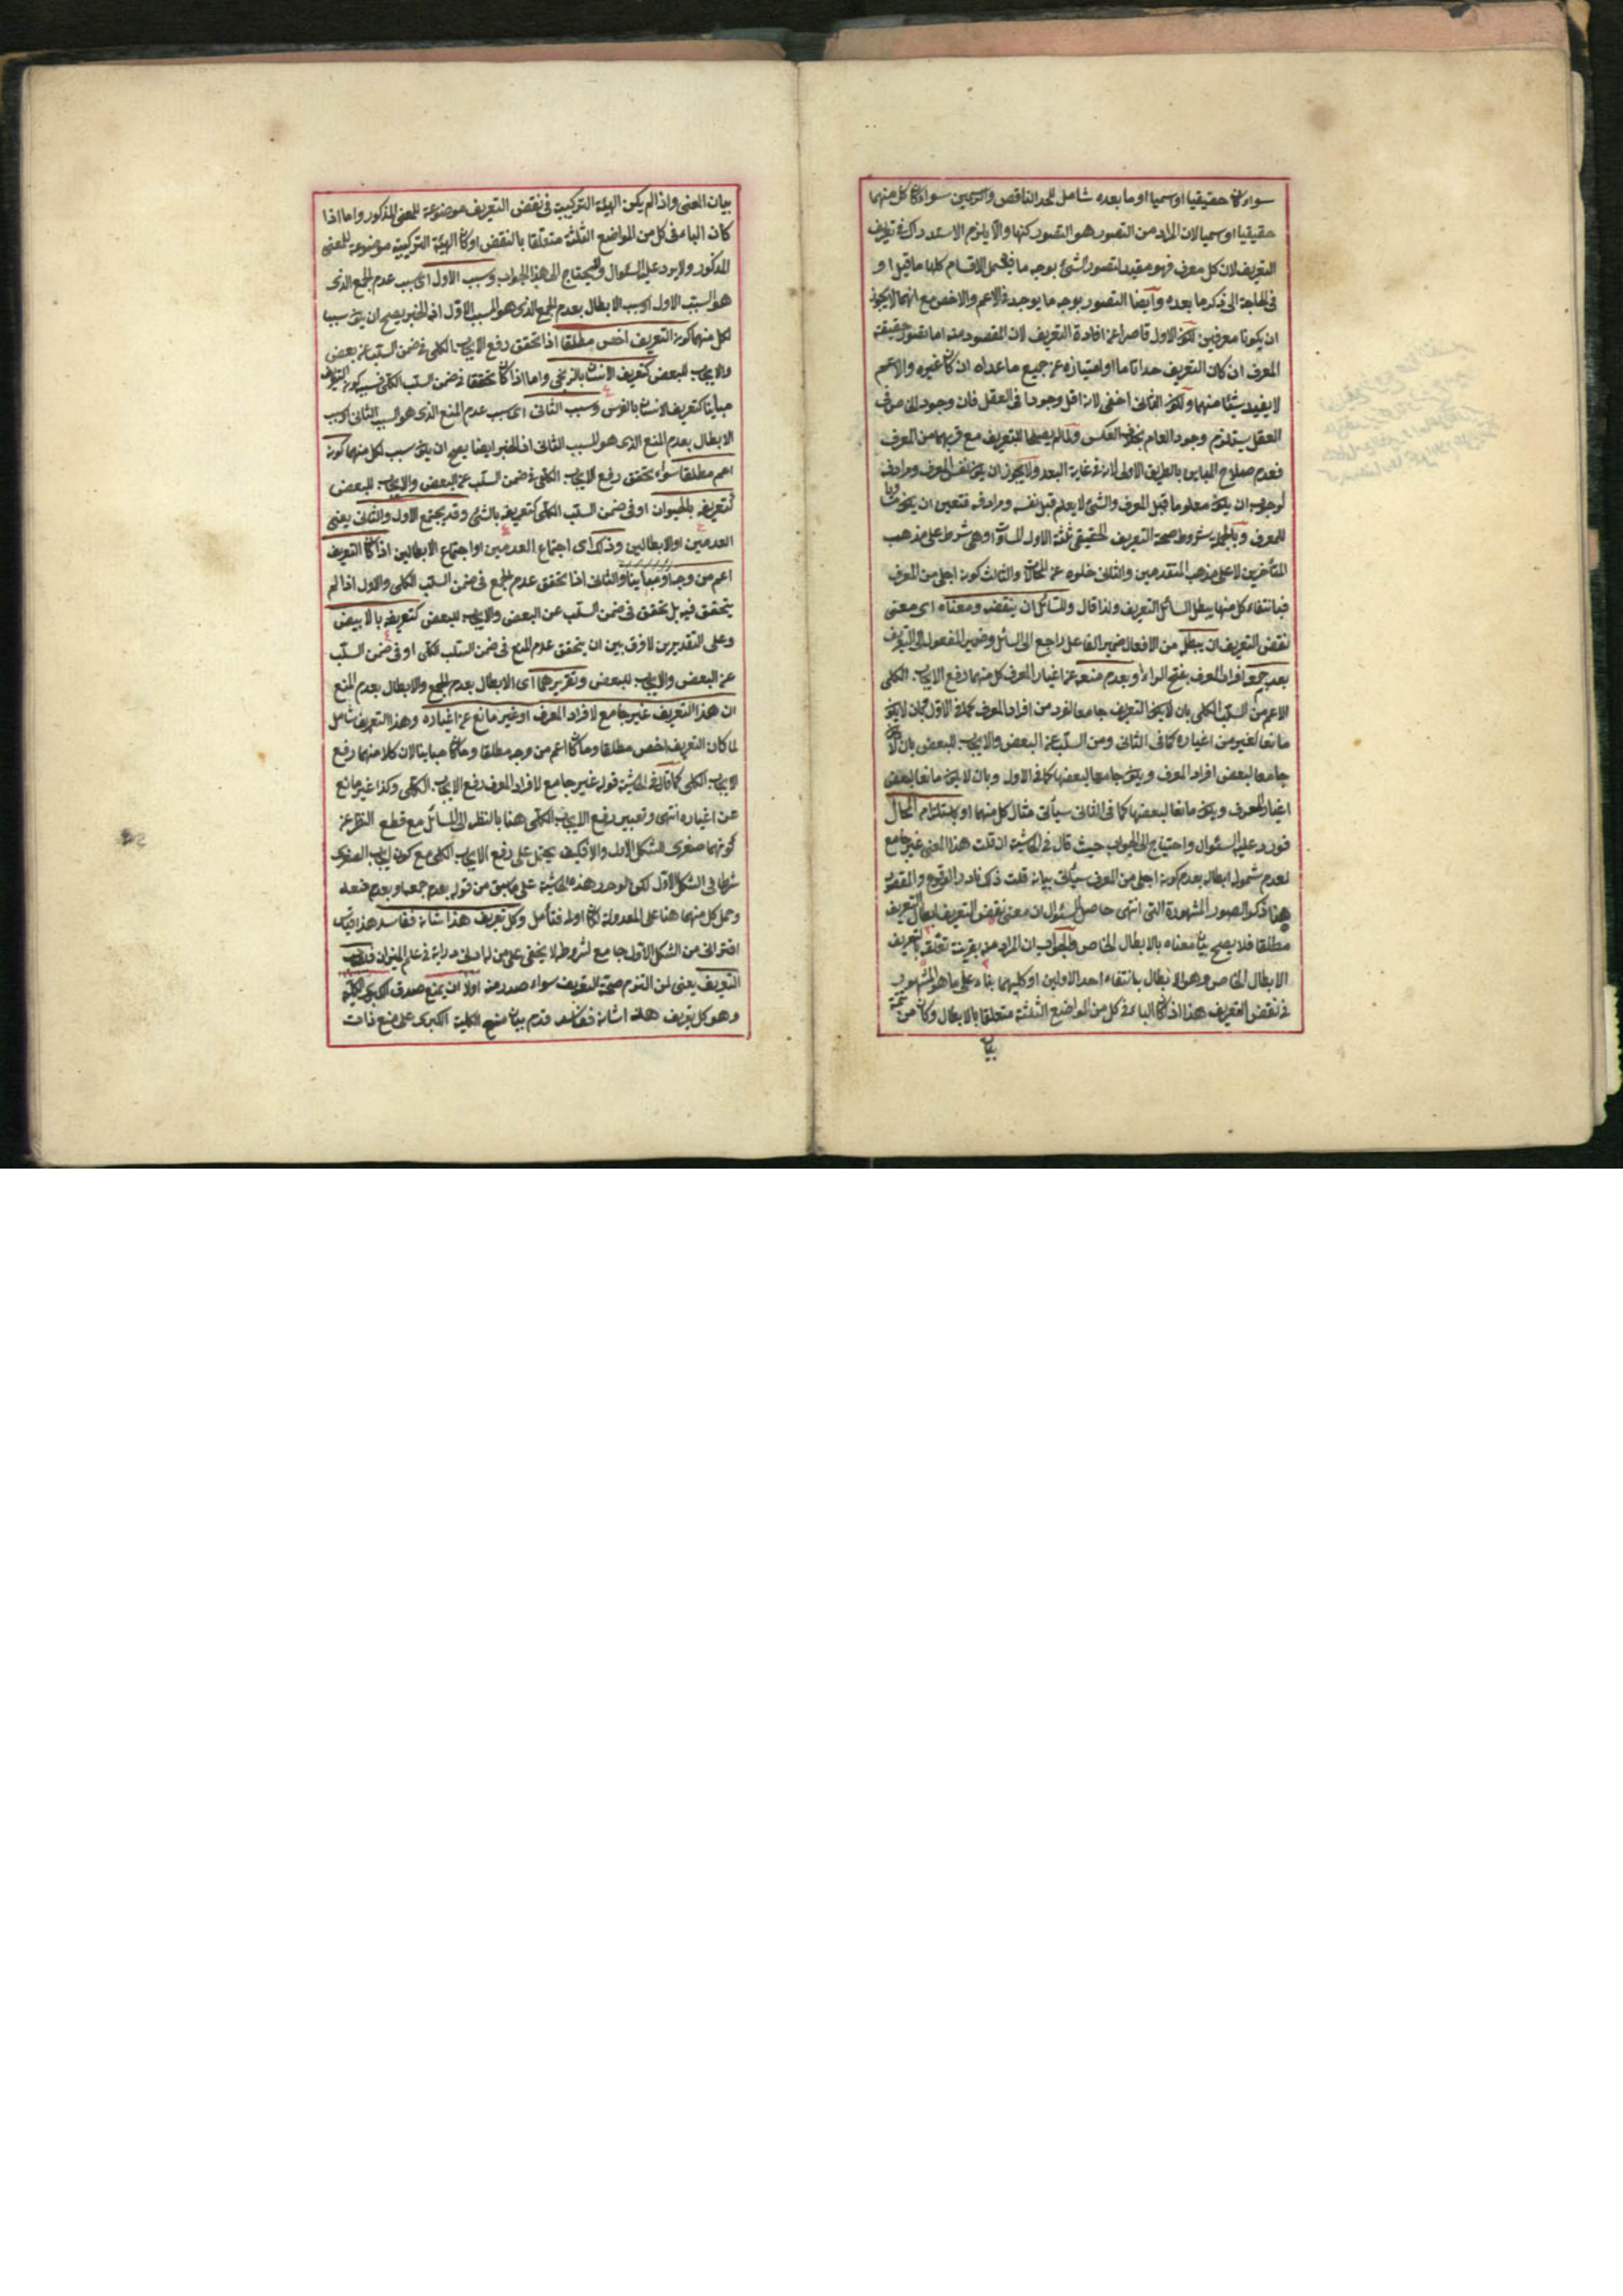 سواء كان حقيقيا او سميا او ما بعده شامل للحد الناقص والرسمين سواء كان كل منهما
حقيقيا او سميا لان المراد من التصور هو التصور كنها والا يلزم الاستدراك في تعريف
التعريف لان كل معرف فهو مفيد لتصور الشئ بوجه ما فيحمل الاقسام كلها ما قبل او
في الحاجة الى ذكر ما بعده وأيضا التصور بوجه ما يوجد في الاعم والاخص مع انهما لا يجوز
ان يكونا معرفين لكون الاول قاصرا عن افادة التعريف لان المقصود منه اما تصور حقيقة
المعرف ان كان التعريف حدا تاما او امتيازه عن جميع ما عداه ان كان غيره والاعم
لا يفيد شيئا منهما ولكون الثاني اخفى لانه اقل وجودا في العقل فان وجود الخاص في
العقل يستلزم وجود العام بخلاف العكس ولما لم يصلحا للتعريف مع قربهما من المعرف
فعدم صلاح المباين بالطريق الاولى لانه في غاية البعد ولا يجوز ان يكون نفس المعرف ومرادفه
لوجوب ان يكون معلوما قبل المعرف والشئ لا يعلم قبل نفسه ومرادفه فتعين ان يكون مساويا
للمعرف وبالجملة شروط صحة التعريف الحقيقي ثلثة الاول المساواة وهي شرط على مذهب
المتأخرين لا على مذهب المتقدمين والثاني خلوه عن المحالات والثالث كونه اجلى من المعرف
فبانتفاء كل منها يبطل السائل التعريف ولذا قال وللسائل ان ينقضه ومعناه اى معنى
نقض التعريف ان يبطل من الافعال ضمير الفاعل راجع الى السائل وضمير المفعول الى التعريف
بعدم جمعه افراد المعرف بفتح الراء او بعدم منعه عن اغيار المعرف كل منهما رفع الايجاب الكلى
الاعم من السلب الكلى بان لا يكون التعريف جامعا لفرد من افراد المعرف كما في الاول وبان لا يكون
مانعا لغير من اغياره كما في الثانى ومن السلب عن البعض والايجاب للبعض بان لا يكون
جامعا لبعض افراد المعرف ويكون جامعا لبعضها كما في الاول وبان لا يكون مانعا لبعض
اغيار المعرف ويكون مانعا لبعضها كما في الثانى سيأتى مثال كل منهما او باستلزام المحال
فورد عليه السئوال واحتيج الى الجواب حيث قال في الحاشية ان قلت هذا المعنى غير جامع
لعدم شموله ابطاله بعدم كونه اجلى من المعرف سيأتى بيانه قلت ذلك نادر الوقوع والمقصود
هنا ذكر الصور المشهودة التى انتهى حاصل السئوال ان معنى نقض التعريف ابطال التعريف
مطلقا فلا يصح بيان معناه بالابطال الخاص والجواب ان المراد منه بقرينة تعلقه بالتعريف
الابطال الخاص وهو الابطال بانتفاء احد الاولين او كليهما بناء على ما هو المشهور
في نقض التعريف هذا اذا كان الباء في كل من المواضع الثلثة متعلقا بالابطال وكان من تتمة
بيان
بيان المعنى واذا لم يكن الهيئة التركيبية في نقض التعريف موضوعة للمعنى المذكور واما اذا
كان الباء في كل من المواضع الثلثة متعلقا بالنقض او كان الهيئة التركيبية موضوعة للمعنى
المذكور ولا يرد عليه السئوال ولا يحتاج الى هذا الجواب وسبب الاول اى سبب عدم الجمع الذى
هو السبب الاول او سبب الابطال بعدم الجمع الذى هو السبب الاول اذ الخبر يصح ان يكون سببا
لكل منهما كون التعريف اخص مطلقا اذا تحقق رفع الايجاب الكلى في ضمن السلب عن بعض
والايجاب للبعض كتعريف الانسان بالزنجى واما اذا كان متحققا في ضمن السلب الكلى فسببه كون التعريف
مباينا كتعريف الانسان بالفرس وسبب الثانى اى سبب عدم المنع الذى هو السبب الثانى او سبب
الابطال بعدم المنع الذى هو السبب الثانى اذ الخبر ايضا يصح ان يكون سبب لكل منهما كونه
اعم مطلقا سواء تحقق رفع الايجاب الكلى في ضمن السلب عن البعض والايجاب للبعض
كتعريفه بالحيوان او في ضمن السلب الكلى كتعريفه بالشئ وقد يجتمع الاول والثانى يعنى
العدمين او الابطالين وذلك اى اجتماع العدمين او اجتماع الابطالين اذا كان التعريف
اعم من وجه او مباينا والثانى اذا تحقق عدم الجمع في ضمن السلب الكلى والاول اذا لم
يتحقق فيه بل تحقق في ضمن السلب عن البعض والايجاب للبعض كتعريفه بالابيض
وعلى التقديرين لا فرق بين ان يتحقق عدم المنع في ضمن السلب الكلى او في ضمن السلب
عن البعض والايجاب للبعض وتقريرهما اى الابطال بعدم الجمع والابطال بعدم المنع
ان هذا التعريف غير جامع لافراد المعرف او غير مانع عن اغياره وهذا التعريف شامل
لما كان التعريف اخص مطلقا وما كان اعم من وجه مطلقا وما كان مباينا لان كلا منهما رفع
الايجاب الكلى كما قال في الحاشية قوله غير جامع لافراد المعرف رفع الايجاب الكلى وكذا غير مانع
عن اغياره انتهى وتعبير رفع الايجاب الكلى هنا بالنظر الى السائل مع قطع النظر عن
كونهما صغرى للشكل الاول والا فكيف يحمل على رفع الايجاب الكلى مع كون ايجاب الصغرى
شرطا في الشكل الاول لكن لو حرر هذه الحاشية على ما سبق من قوله بعدم جمعه او بعدم منعه
وحمل كل منهما هنا على المعدولة لكان اولى فتأمل وكل تعريف هذا شانه ففاسد هذا قياس
اقترانى من الشكل الاول جامع لشروطه لا يخفى على من له ادنى دراية في علم الميزان
التعريف يعنى لمن التزم صحة التعريف سواء صدر منه اولا ان يمنع صدق الكبرى الكلية
وهو كل تعريف هذا شانه ففاسد قدم بيان منع الكلية الكبرى على منع ذات